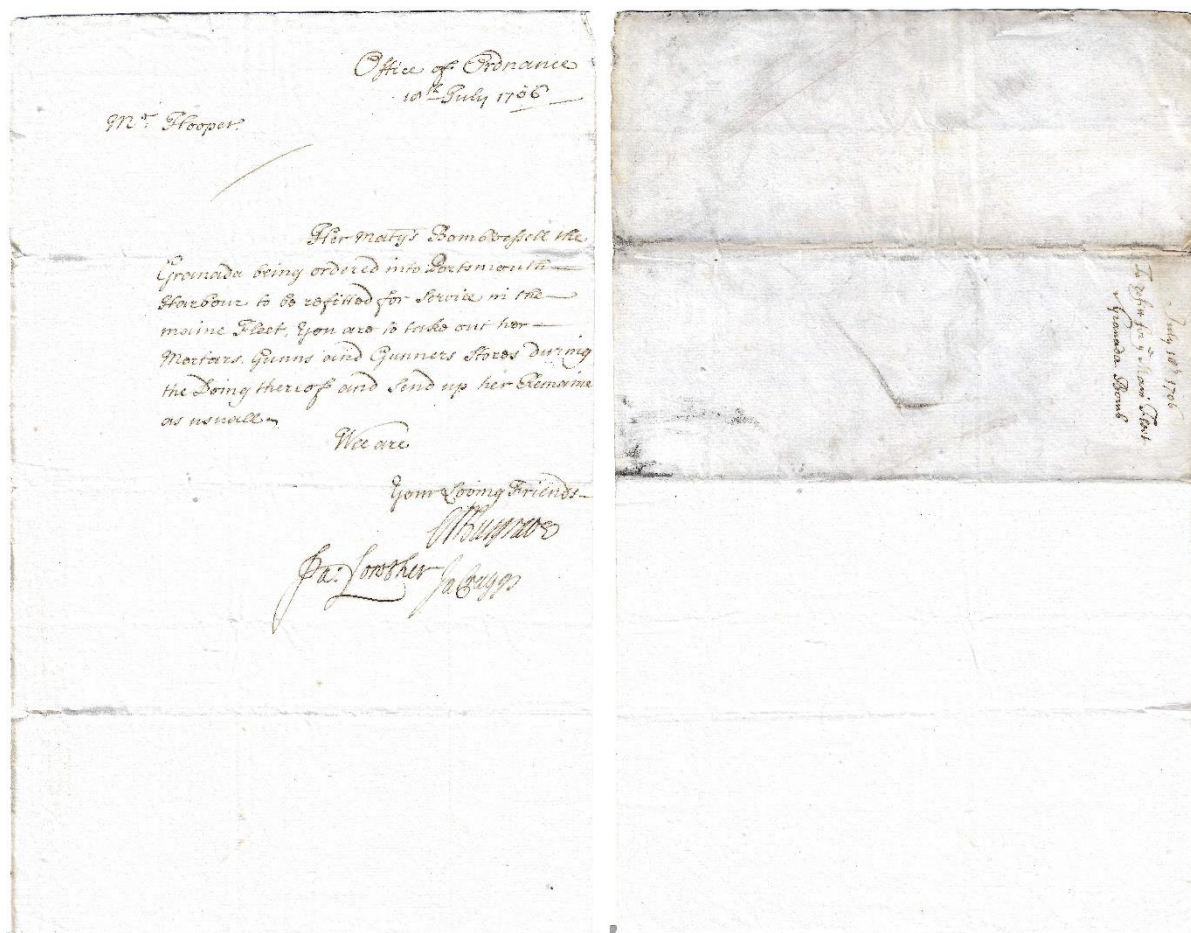 Office of Ordnance
18th July 1706
Mr. Hooper
Her Matys Bombvessell the
Granada being ordered into Portsmouth
Harbour to be refitted for Service in the
maine Fleet, You are to take out her
Mortars, Gunns and Gunners Stores during
the Doing thereof and Send up her Remaine
as usuall
Wee are
Your Loving Friends
CMusgrave
Ja: Lowther Ja Craggs
July 18th 1706
To refitt for ye Main Fleet
Granada Bomb